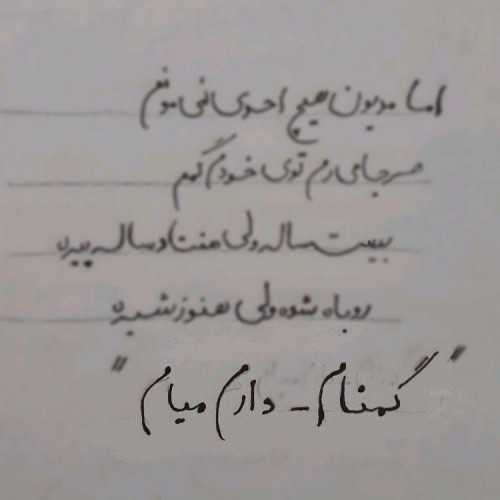 اما مدیون هیچ احدی نمی مونم
هر جا می رم توی خودم گمم
بیست سالہ ولی هفتاد سالہ پیره
روباه شده ولی هنوز شیره
"گمنام - دارم میام"